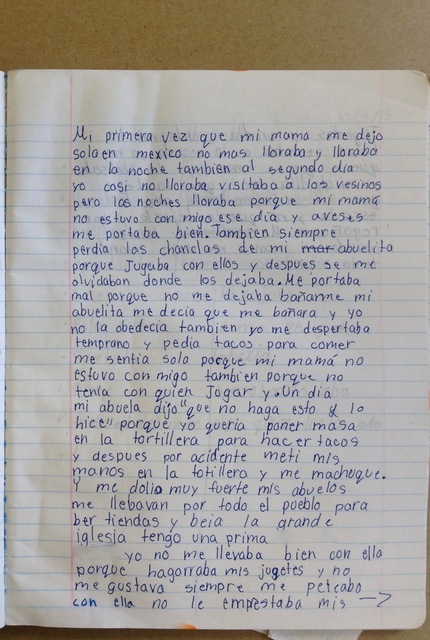 Mi primera vez que mi mama me dejo
sola en mexico no mas lloraba y lloraba
en la noche tambien al segundo dia
yo casi no lloraba visitaba a los vesinos
pero los noches lloraba porque mi mamá
no estuvo con migo ese dia y aveses
me portaba bien. Tambien siempre
perdia las chanclas de mi mar abuelita
porque Jugaba con ellos y despues se me
olvidaban donde los dejaba. Me portaba
mal porque no me dejaba bañarme mi
abuelita me decia que me bañara y yo
no la obedecia tambien yo me despertaba
temprano y pedia tacos para comer
me sentia solo porque mi mamá no
estuvo con migo tambien porque no
tenia con quien Jugar y. Un dia
mi abuela dijo "que no haga esto y lo
hice" porque yo queria poner masa
en la tortillera para hacer tacos
y despues por acidente meti mis
manos en la totillera y me machuque.
Y me dolio muy fuerte mis abuelos
me llebavan por todo el pueblo para
ber tiendas y beia la grande
iglesia tengo una prima
yo no me llevaba bien con ella
porque hagorraba mis jugetes y no
me gustava siempre me peleaba
con ella no le emprestaba mis →